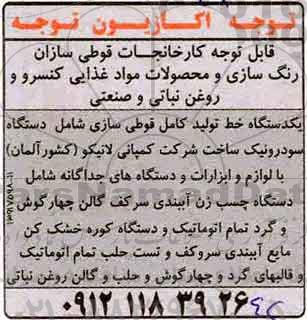 توجه اکازیون توجه
قابل توجه کارخانجات قوطی سازان
رنگ سازی و محصولات مواد غذایی کنسرو و
روغن نباتی و صنعتی
یکدستگاه خط تولید کامل قوطی سازی شامل دستگاه
سودرونیک ساخت شرکت کمپانی لانیکو (کشور آلمان)
با لوازم و ابزارات و دستگاه های جداگانه شامل
دستگاه چسب زن آببندی سرکف گالن چهارگوش
و گرد تمام اتوماتیک و دستگاه کوره خشک کن
مایع آببندی سروکف و تست حلب تمام اتوماتیک
و قالبهای گرد و چهارگوش و حلب و گالن روغن نباتی
۰۹۱۲ ۱۱۸ ۳۹ ۲۶